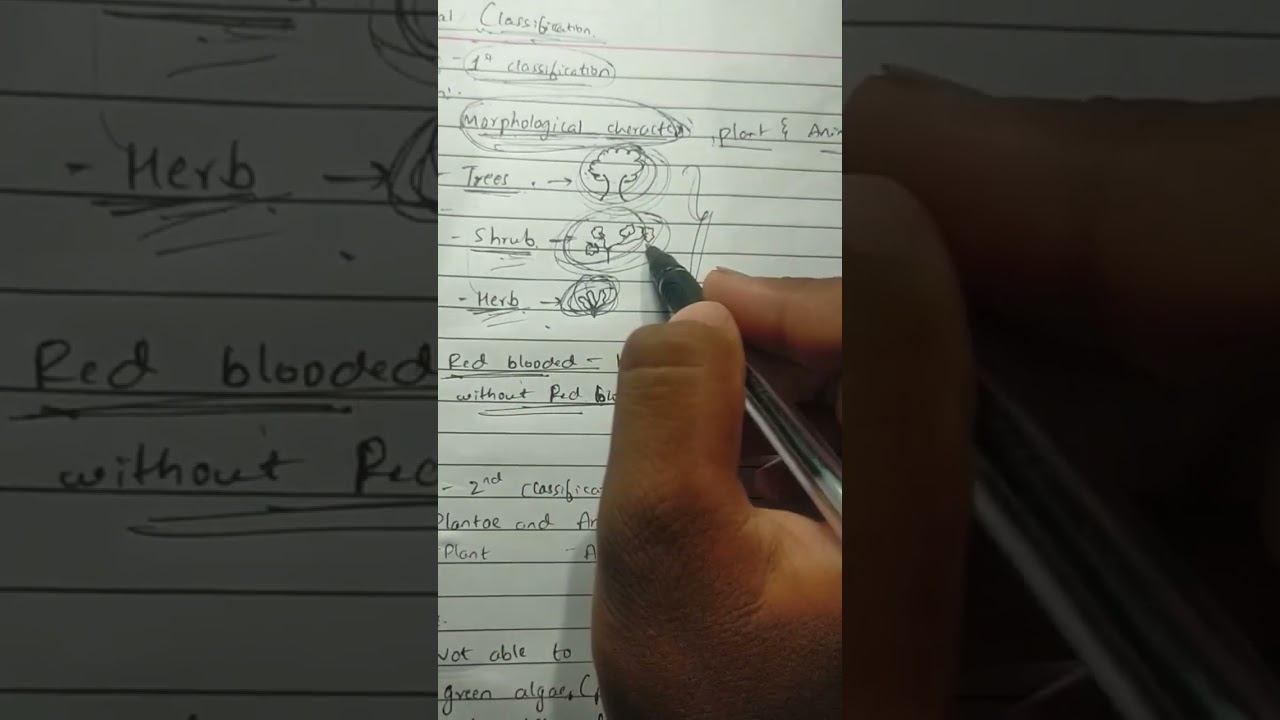 al Classification.
- 1st classification
Morphological cheracter, plant & Ani
- Trees . →
- Shrub. →
- Herb →
Red blooded -
without Red blo
- 2nd Classifica
Plantae and An
Plant - A
Not able to
green algae, (
- Herb →
Red blooded
without Red